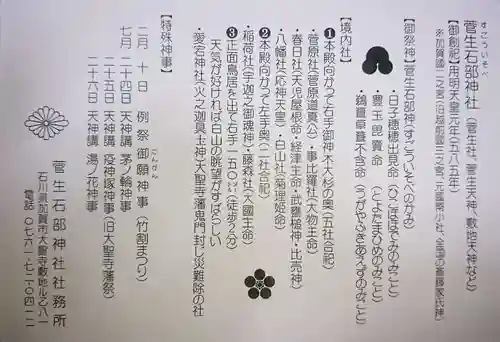 すごういそべ
菅生石部神社（菅生社、菅生天神、敷地天神など）
【御創記】用明天皇元年（五八五年）
※加賀國二之宮（旧越前國三之宮、元國幣小社、全国の斎藤家氏神）
【御祭神】菅生石部神（すごういそべのかみ）
・日子穂穂出見命（ひこほほでみのみこと）
・豊玉毘賣命（とよたまひめのみこと）
・鵜葺草葺不合命（うがやふきあえずのみこと）
【境内社】
❶本殿向かって右手御神木大杉の奥（五社合祀）
・菅原社（菅原道真公）・事比羅社（大物主命）
・春日社（天児屋根命・経津主命・武甕槌神・比売神）
・八幡社（応神天皇）・白山社（菊理姫命）
❷本殿向かって左手奥（二社合祀）
・稲荷社（宇迦之御魂神）・藤森社（大國主命）
❸正面鳥居を出て右手一五〇㍍（徒歩２分）
天気が好ければ白山の眺望がすばらしい
・愛宕神社（火之迦具土神）大聖寺藩鬼門封じ災難除の社
【特殊神事】
二月 十日 例祭 御願神事（竹割まつり）
ごんがん
七月 二十四日 天神講 茅ノ輪神事
二十五日 天神講 疫神塚神事（旧大聖寺藩祭）
二十六日 天神講 湯ノ花神事
菅生石部神社社務所
石川県加賀市大聖寺敷地ル乙八一
電話 〇七六一-七二-〇四一二